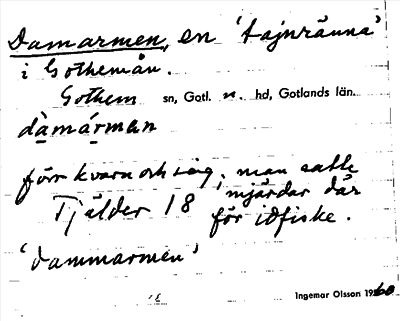 Damarmen, en 'tajnränna'
i Gothemån.
Gothem sn, Gotl. n. hd, Gotlands län.
dämármen
förr kvarn och såg; man satte
mjärdar där
Tjälder 18 för idfiske.
'dammarmen'
Ingemar Olsson 1960